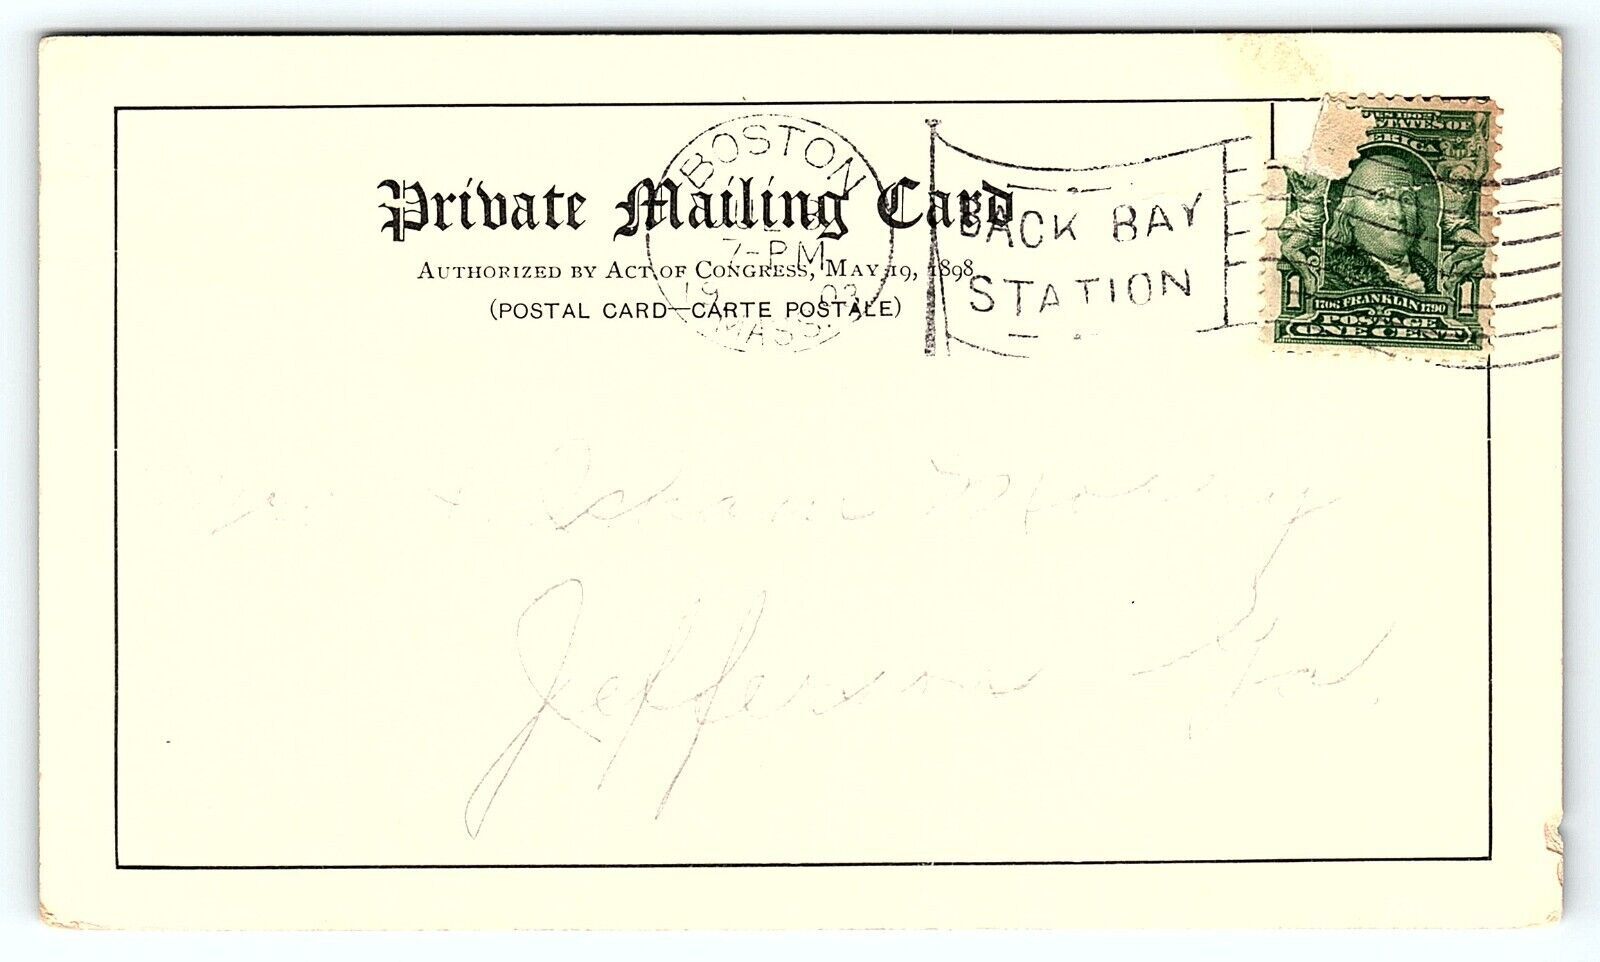 BOSTON
7-PM
19 03
MASS.
BACK BAY
STATION
Private Mailing Card
AUTHORIZED BY ACT OF CONGRESS, MAY 19, 1898
(POSTAL CARD—CARTE POSTALE)
STATES OF
1 1708 FRANKLIN 1790 1
POSTAGE
ONE CENT
Jefferson Ga.